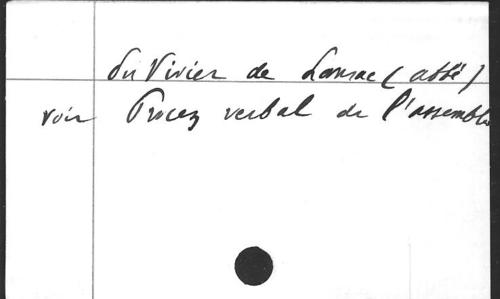 du Vivier de Lansac (abbé)
voir Procez verbal de l'assemblée